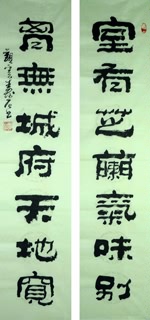 室有芝蘭氣味別
胷無城府天地寬